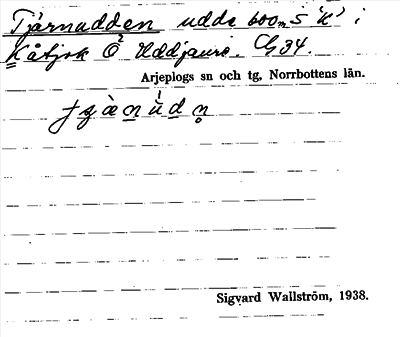 Tjärnudden udde 600 m S "K" i
Kåtjok Ö² Uddjaure. Cg 34.
Arjeplogs sn och tg, Norrbottens län.
Sigvard Wallström, 1938.